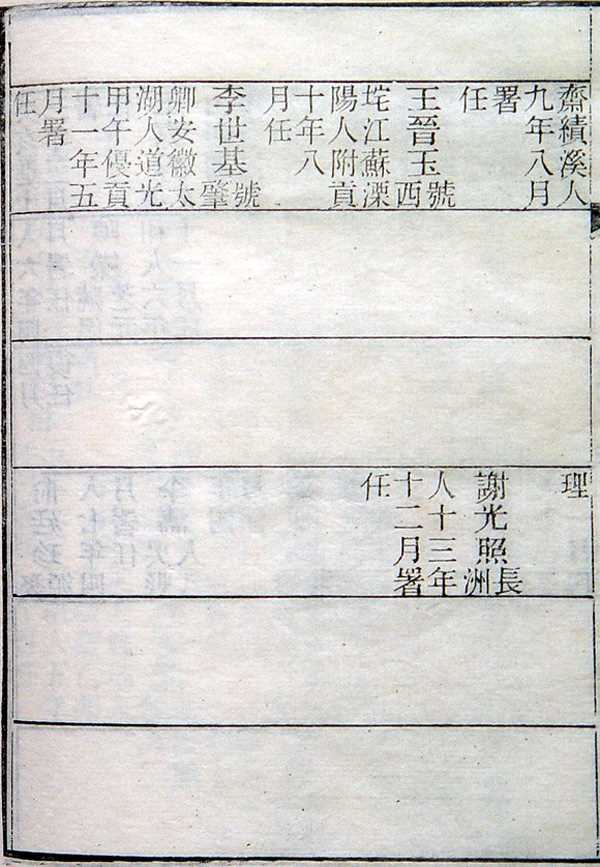 齋績溪人
九年八月
署
任
王晉玉號西
垞江蘇溧
陽人附貢
十年八
月任
李世基號肇
卿安徽太
湖人道光
甲午優貢
十一年五
月署
任
理
謝光照長洲
人十三年
十二月署
任